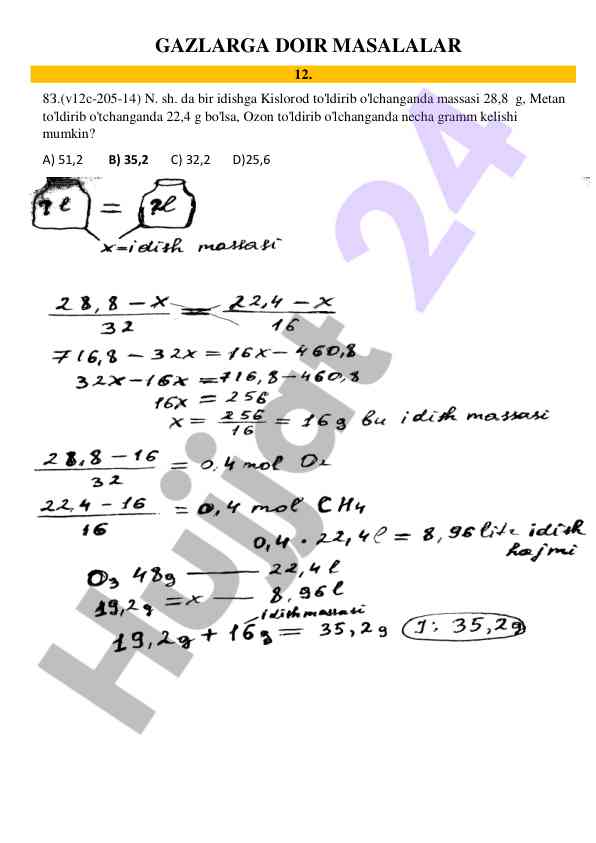 GAZLARGA DOIR MASALALAR
12.
83.(v12c-205-14) N. sh. da bir idishga Kislorod to'ldirib o'lchanganda massasi 28,8 g, Metan
to'ldirib o'tchanganda 22,4 g bo'lsa, Ozon to'ldirib o'lchanganda necha gramm kelishi
mumkin?
A) 51,2 B) 35,2 C) 32,2 D)25,6
= 
x=idish massasi
28,8 - x / 32 = 22,4 - x / 16
716,8 - 32x = 16x - 460,8
32x - 16x = 716,8 - 460,8
16x = 256
x = 256 / 16 = 16 g bu idish massasi
28,8 - 16 / 32 = 0,4 mol O2
22,4 - 16 / 16 = 0,4 mol CH4
0,4 · 22,4 l = 8,96 litr idish
hajmi
O3 48g — 22,4 l
19,2g = x — 8,96 l
idish massasi
19,2g + 16g = 35,2g J: 35,2g
Hujjat 24